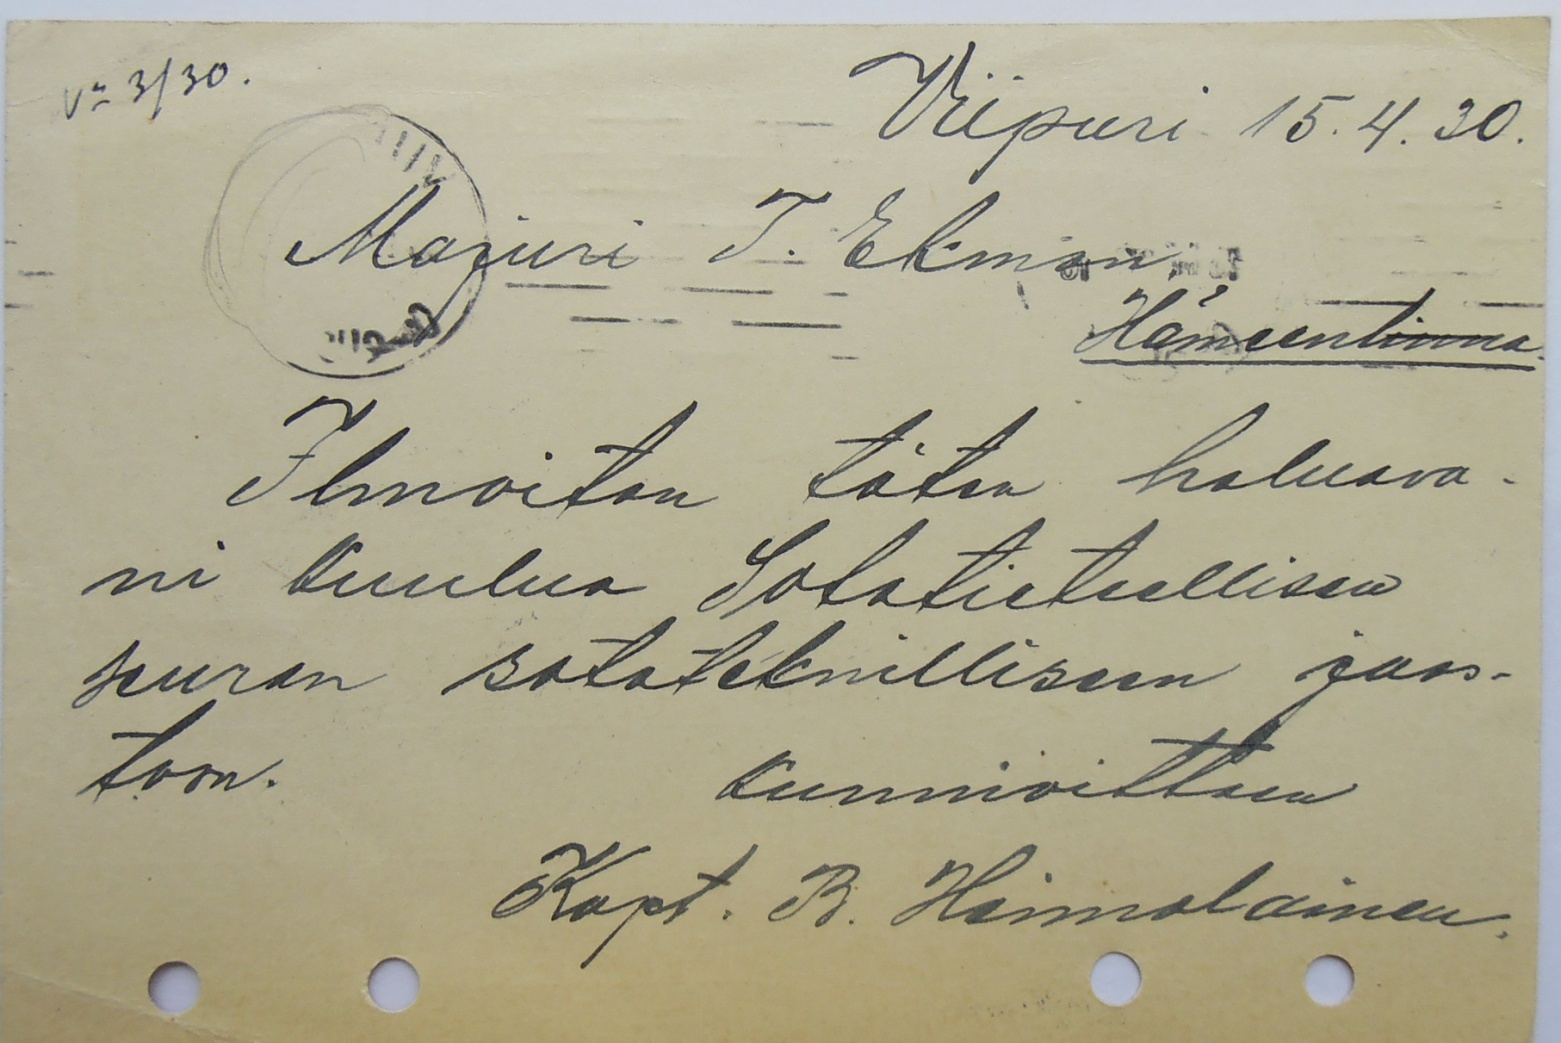 No 3/30.
Viipuri 15.4.30.
Majuri T. Ekman,
Hämeenlinna.
Ilmoitan täten haluava-
ni kuulua Sotatieteellisen
seuran sotateknilliseen jaos-
toon.
Kunnioittaen
Kapt. B. Heinolainen.